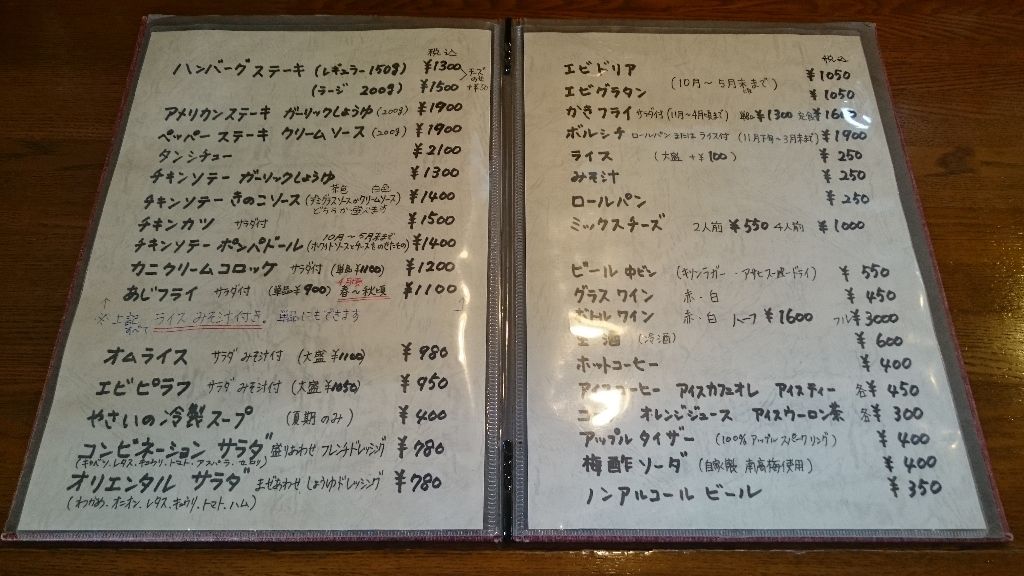 税込
ハンバーグステーキ (レギュラー150g) ¥1300
(ラージ 200g) ¥1500
チーズのせ +¥50
アメリカンステーキ ガーリックしょうゆ (200g) ¥1900
ペッパーステーキ クリームソース (200g) ¥1900
タンシチュー ¥2100
チキンソテー ガーリックしょうゆ ¥1300
茶色 白色
チキンソテー きのこソース (デミグラスソースかクリームソース) ¥1400
どちらか選べます
チキンカツ サラダ付 ¥1500
10月～5月末まで
チキンソテー ポンパドール (ホワイトソースとチーズをのせたもの) ¥1400
カニクリームコロッケ サラダ付 (単品¥1100) ¥1200
あじフライ サラダ付 (単品¥900) 春～秋頃 ¥1100
※上記すべて ライス みそ汁付き 単品にもできます
オムライス サラダ みそ汁付 (大盛¥1100) ¥980
エビピラフ サラダ みそ汁付 (大盛¥1050) ¥950
やさいの冷製スープ (夏期のみ) ¥400
コンビネーション サラダ 盛りあわせ フレンチドレッシング ¥780
(キャベツ、レタス、キュウリ、トマト、アスパラ、セロリ)
オリエンタル サラダ まぜあわせ しょうゆドレッシング ¥780
(わかめ、オニオン、レタス、キュウリ、トマト、ハム)
税込
エビドリア ¥1050
(10月～5月末まで)
エビグラタン ¥1050
かきフライ サラダ付 (11月～4月頃まで) 単品¥1300 定食¥1615
ボルシチ ロールパンまたはライス付 (11月下旬～3月末まで) ¥1900
ライス (大盛 +¥100) ¥250
みそ汁 ¥250
ロールパン ¥250
ミックスチーズ 2人前 ¥550 4人前 ¥1000
ビール 中ビン (キリンラガー・アサヒスーパードライ) ¥550
グラスワイン 赤・白 ¥450
ボトルワイン 赤・白 ハーフ ¥1600 フル¥3000
生酒 (冷酒) ¥600
ホットコーヒー ¥400
アイスコーヒー アイスカフェオレ アイスティー 各¥450
コーラ オレンジジュース アイスウーロン茶 各¥300
アップルタイザー (100%アップルスパークリング) ¥400
梅酢ソーダ (自家製 南高梅使用) ¥400
ノンアルコール ビール ¥350